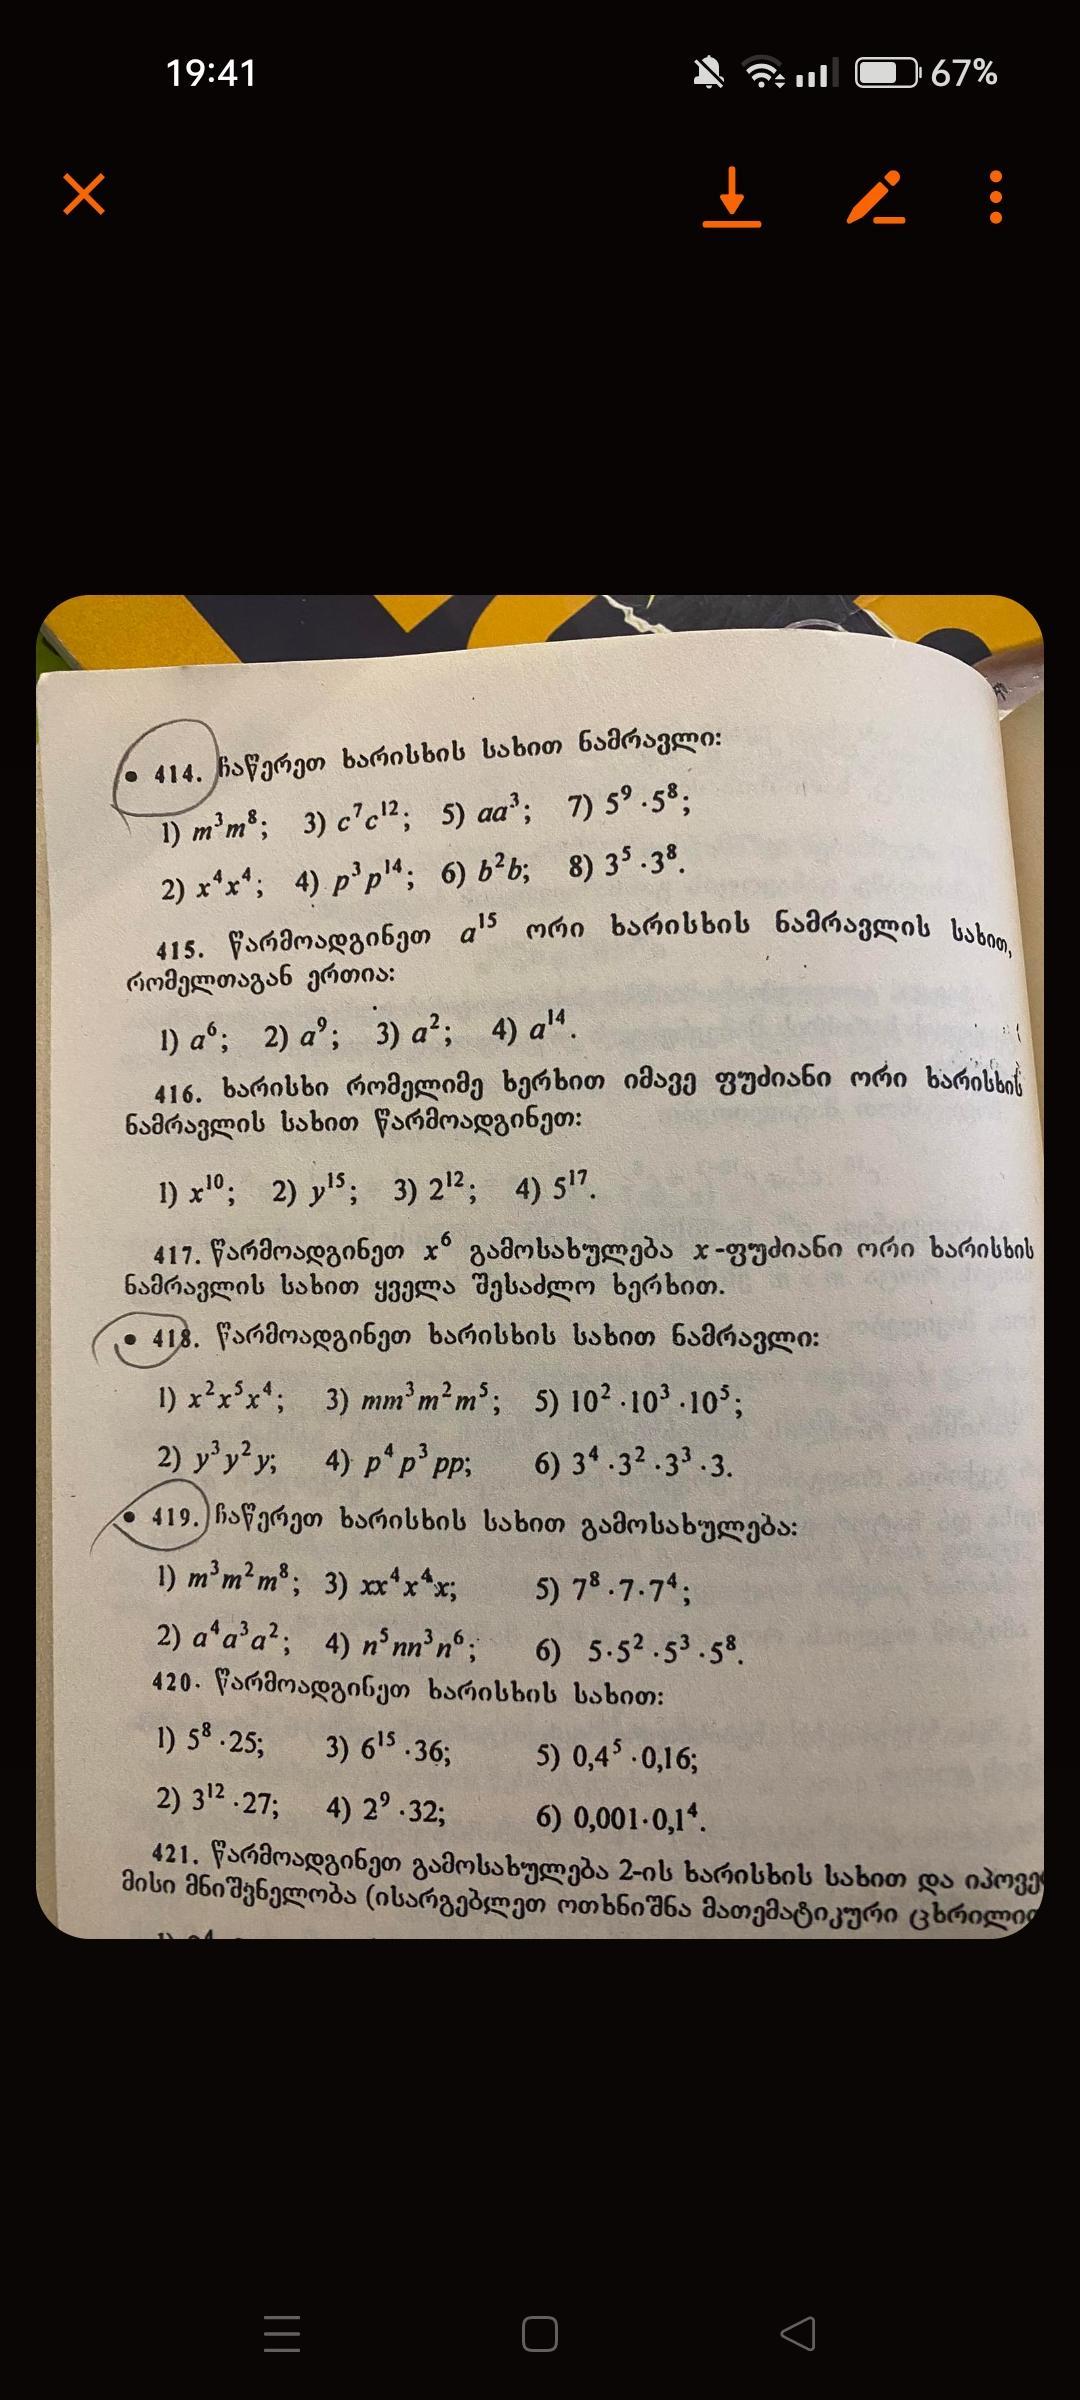 19:41 67%
• 414. ჩაწერეთ ხარისხის სახით ნამრავლი:
1) m³m⁸; 3) c⁷c¹²; 5) aa³; 7) 5⁹·5⁸;
2) x⁴x⁴; 4) p³p¹⁴; 6) b²b; 8) 3⁵·3⁸.
415. წარმოადგინეთ a¹⁵ ორი ხარისხის ნამრავლის სახით,
რომელთაგან ერთია:
1) a⁶; 2) a⁹; 3) a²; 4) a¹⁴.
416. ხარისხი რომელიმე ხერხით იმავე ფუძიანი ორი ხარისხის
ნამრავლის სახით წარმოადგინეთ:
1) x¹⁰; 2) y¹⁵; 3) 2¹²; 4) 5¹⁷.
417. წარმოადგინეთ x⁶ გამოსახულება x-ფუძიანი ორი ხარისხის
ნამრავლის სახით ყველა შესაძლო ხერხით.
• 418. წარმოადგინეთ ხარისხის სახით ნამრავლი:
1) x²x⁵x⁴; 3) mm³m²m⁵; 5) 10²·10³·10⁵;
2) y³y²y; 4) p⁴p³pp; 6) 3⁴·3²·3³·3.
• 419. ჩაწერეთ ხარისხის სახით გამოსახულება:
1) m³m²m⁸; 3) xx⁴x⁴x; 5) 7⁸·7·7⁴;
2) a⁴a³a²; 4) n⁵nn³n⁶; 6) 5·5²·5³·5⁸.
420. წარმოადგინეთ ხარისხის სახით:
1) 5⁸·25; 3) 6¹⁵·36; 5) 0,4⁵·0,16;
2) 3¹²·27; 4) 2⁹·32; 6) 0,001·0,1⁴.
421. წარმოადგინეთ გამოსახულება 2-ის ხარისხის სახით და იპოვე
მისი მნიშვნელობა (ისარგებლეთ ოთხნიშნა მათემატიკური ცხრილით